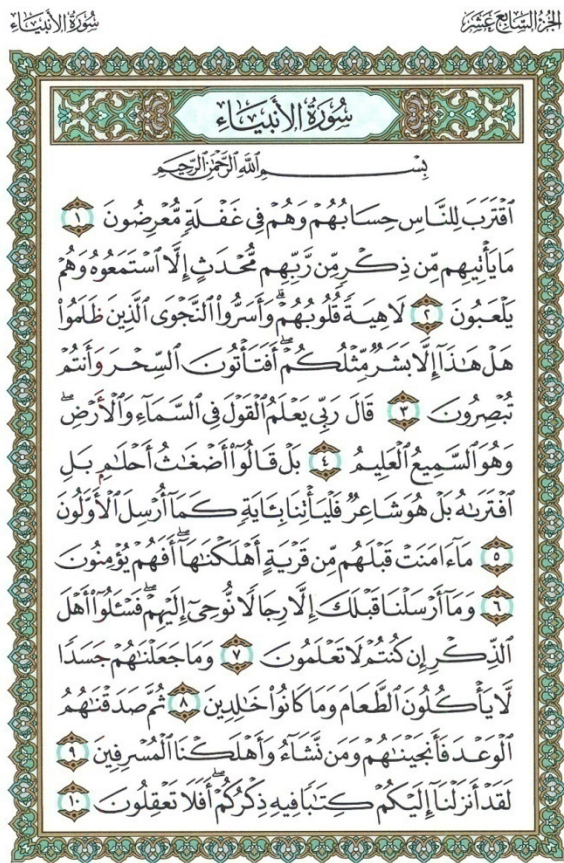 سُورَةُ الأَنبِيَاءِ
الجُزْءُ السَّابِعَ عَشَرَ
سُورَةُ الأَنبِيَاءِ
بِسْمِ ٱللَّهِ ٱلرَّحْمَٰنِ ٱلرَّحِيمِ
ٱقْتَرَبَ لِلنَّاسِ حِسَابُهُمْ وَهُمْ فِى غَفْلَةٍ مُّعْرِضُونَ ١
مَا يَأْتِيهِم مِّن ذِكْرٍ مِّن رَّبِّهِم مُّحْدَثٍ إِلَّا ٱسْتَمَعُوهُ وَهُمْ
يَلْعَبُونَ ٢ لَاهِيَةً قُلُوبُهُمْ ۗ وَأَسَرُّوا۟ ٱلنَّجْوَى ٱلَّذِينَ ظَلَمُوا۟
هَلْ هَٰذَآ إِلَّا بَشَرٌ مِّثْلُكُمْ ۖ أَفَتَأْتُونَ ٱلسِّحْرَ وَأَنتُمْ
تُبْصِرُونَ ٣ قَالَ رَبِّى يَعْلَمُ ٱلْقَوْلَ فِى ٱلسَّمَآءِ وَٱلْأَرْضِ ۖ
وَهُوَ ٱلسَّمِيعُ ٱلْعَلِيمُ ٤ بَلْ قَالُوٓا۟ أَضْغَٰثُ أَحْلَٰمٍۭ بَلِ
ٱفْتَرَىٰهُ بَلْ هُوَ شَاعِرٌ فَلْيَأْتِنَا بِـَٔايَةٍ كَمَآ أُرْسِلَ ٱلْأَوَّلُونَ
٥ مَآ ءَامَنَتْ قَبْلَهُم مِّن قَرْيَةٍ أَهْلَكْنَٰهَآ ۖ أَفَهُمْ يُؤْمِنُونَ
٦ وَمَآ أَرْسَلْنَا قَبْلَكَ إِلَّا رِجَالًا نُّوحِىٓ إِلَيْهِمْ ۖ فَسْـَٔلُوٓا۟ أَهْلَ
ٱلذِّكْرِ إِن كُنتُمْ لَا تَعْلَمُونَ ٧ وَمَا جَعَلْنَٰهُمْ جَسَدًا
لَّا يَأْكُلُونَ ٱلطَّعَامَ وَمَا كَانُوا۟ خَٰلِدِينَ ٨ ثُمَّ صَدَقْنَٰهُمُ
ٱلْوَعْدَ فَأَنجَيْنَٰهُمْ وَمَن نَّشَآءُ وَأَهْلَكْنَا ٱلْمُسْرِفِينَ ٩
لَقَدْ أَنزَلْنَآ إِلَيْكُمْ كِتَٰبًا فِيهِ ذِكْرُكُمْ ۖ أَفَلَا تَعْقِلُونَ ١٠